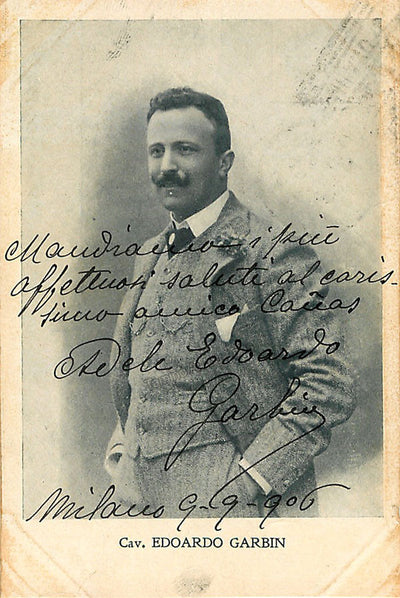 Mandiamo i più
affettuosi saluti al caris-
simo amico Cañas
Adele Edoardo
Garbin
Milano 9-9-906
Cav. EDOARDO GARBIN